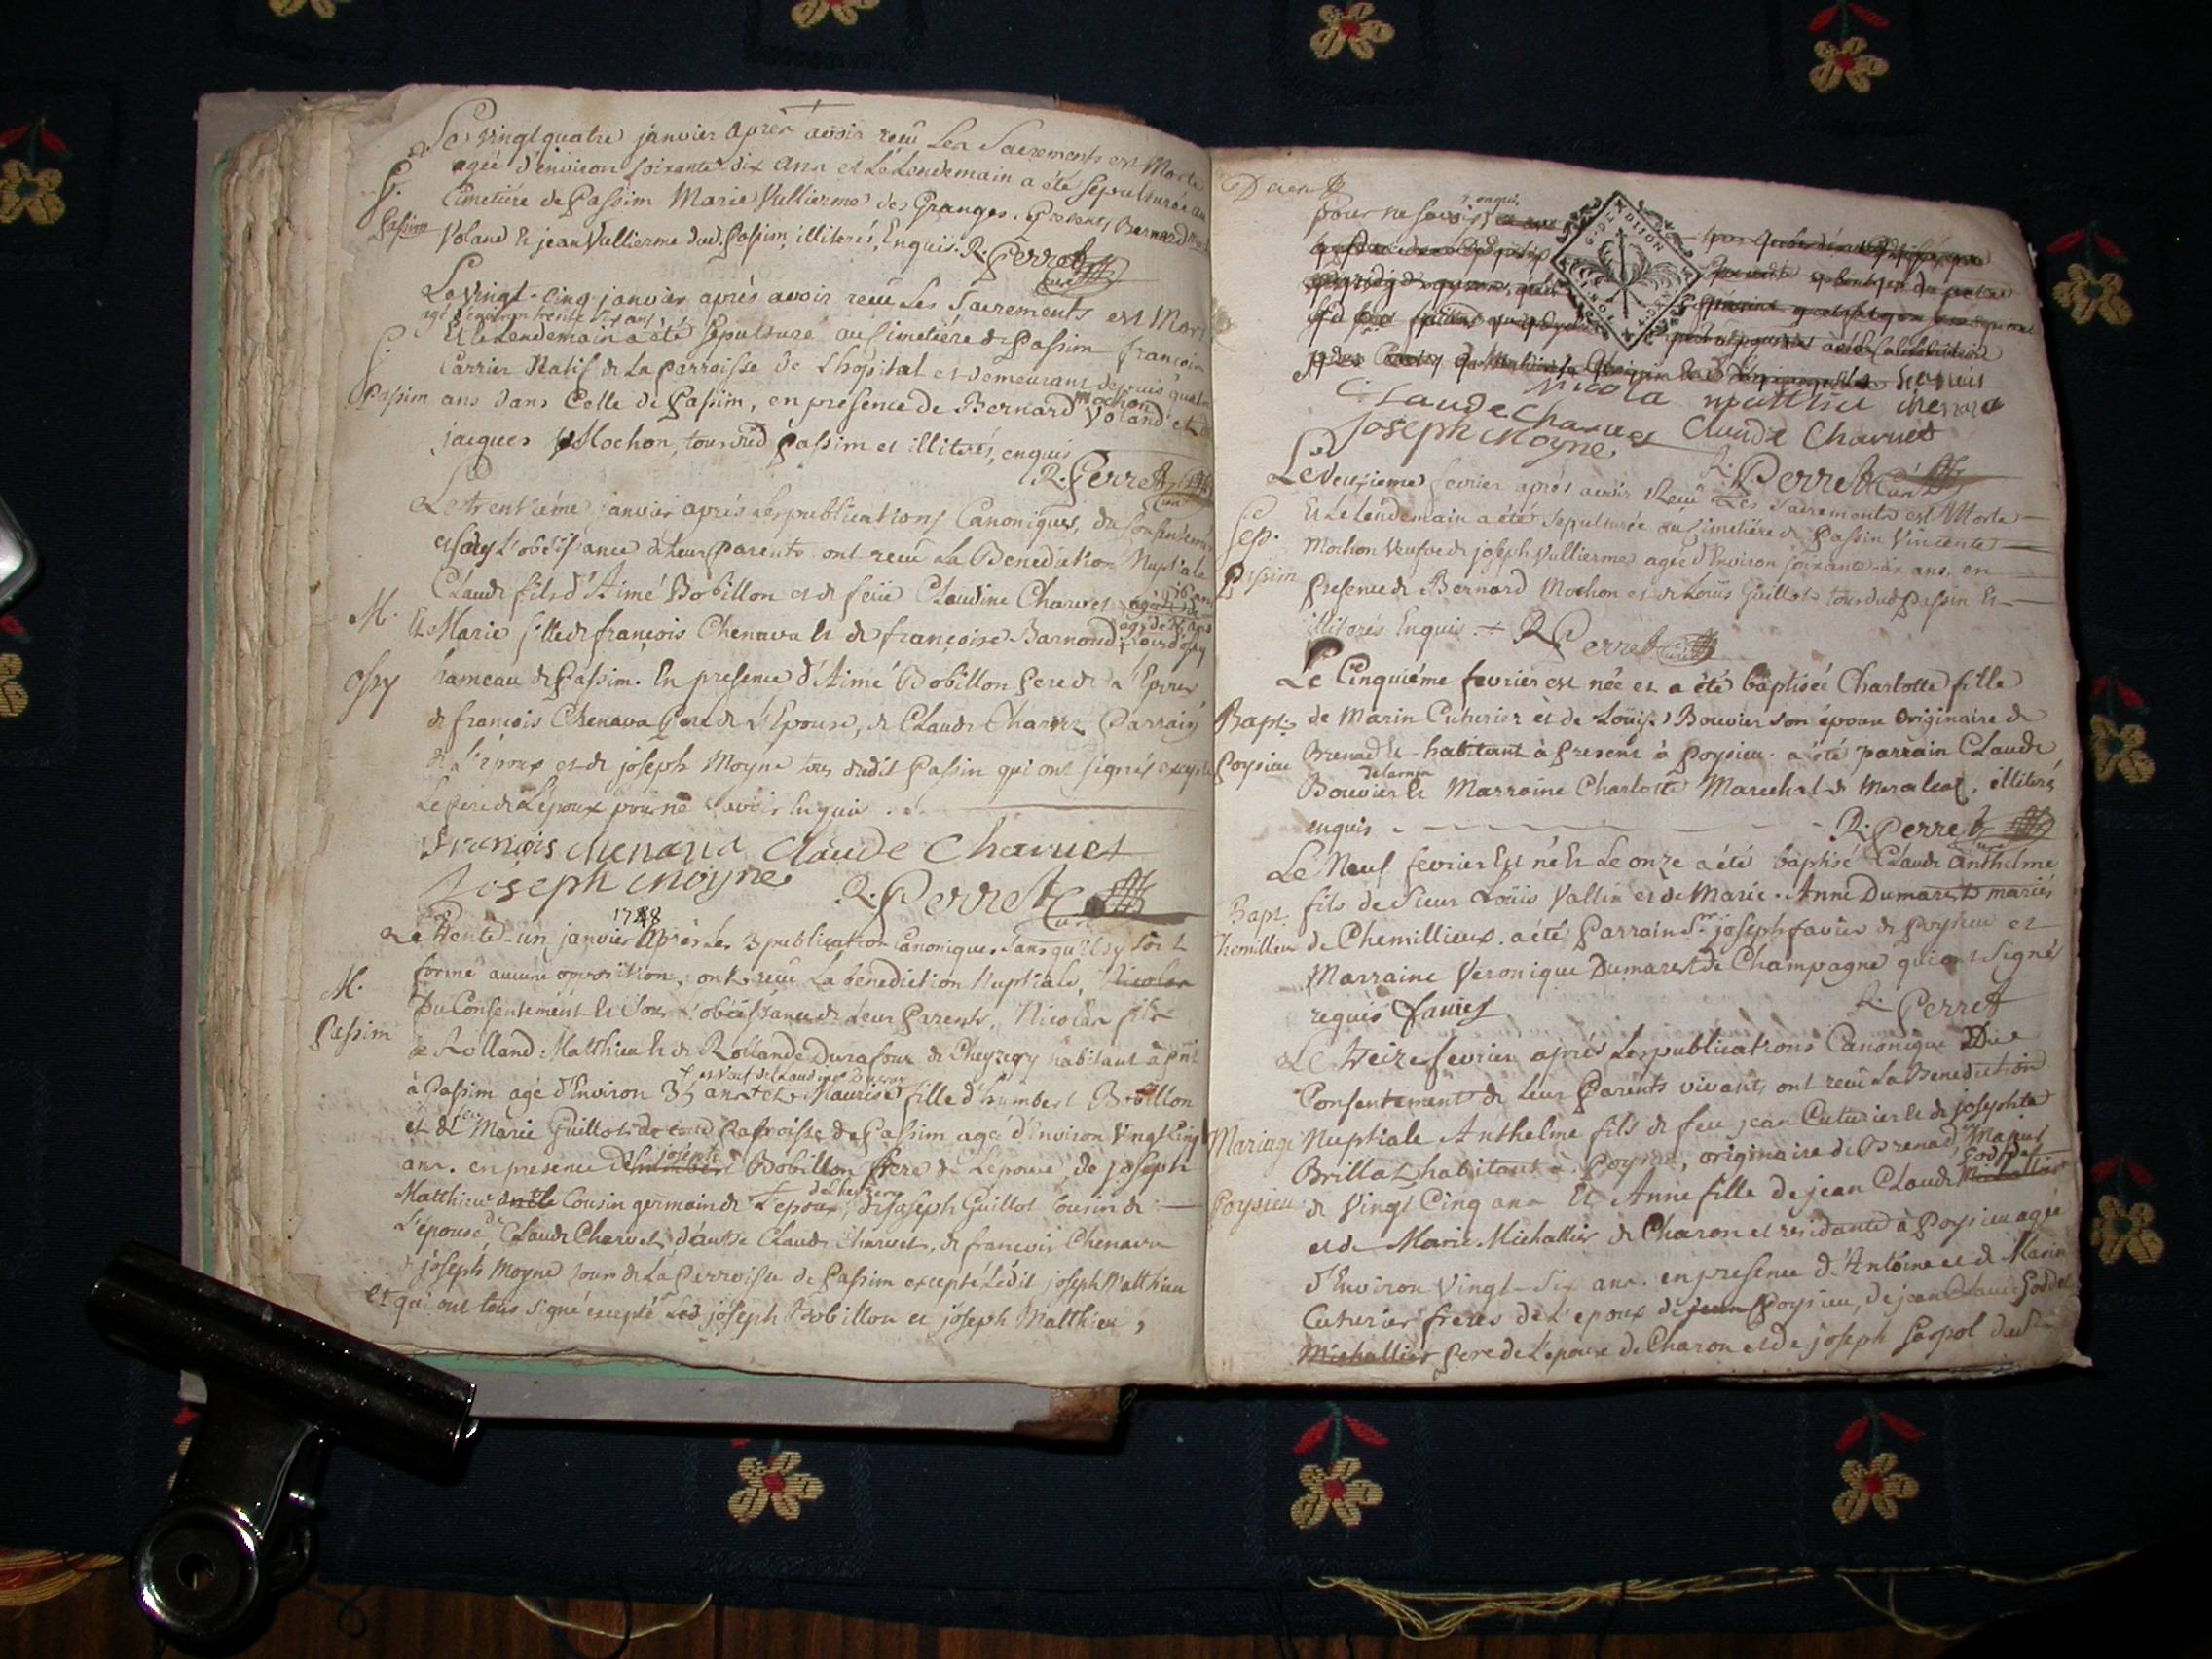 Le vingt quatre janvier après avoir reçu Les Sacrements est Morte
agée d'environ soixante dix ans et Le Lendemain a été sepulturée au
S. Cimetiére de Passim Marie Vullierme des Granges. Presents Bernard
Passim Voland et jean Vullierme dud. Passim, illiterés, Enquis. R. Perret
curé
Le vingt-cinq janvier après avoir reçu Les Sacrements est Mort
agé d'environ trente six ans
Et le Lendemain a été sepulturé au Cimetiére de Passim françois
S. Carrier Natif de La Parroisse de L'hopital et demeurant depuis quatre
Passim ans dans Celle de Passim, en presence de Bernard Mochon Voland et de
jacques Mochon, tous dud Passim et illiterés, enquis
R. Perret curé
Le trentiéme janvier après Les publications Canoniques, du Consentement
et sous L'obeïssance de Leurs Parents ont reçu La Benediction Nuptiale
Claude fils d'Aimé Bobillon et de feüe Claudine Charvet
M. Et Marie fille de françois Chenava et de françoise Barnoud, tous d'ossy
ossy hameau de Passim. En presence d'Aimé Bobillon Pere de L'Epoux
de françois Chenava Pere de L'Epouse, de Claude Charvet Parrain
de L'époux et de joseph Moyne tous dudit Passin qui ont signés excepté
Le Pere de L'époux pour ne savoir Enquis
françois chenava Claude Charvet
Joseph Moyne R. Perret Curé
1788
Le trente-un janvier Après Les 3 publications Canoniques sans qu'il s'y soit
formé aucune opposition, ont reçu La benediction Nuptiale, Nicolas
M. Du Consentement Et Sous L'obeissance de Leurs Parents, Nicolas fils
Passim de Rolland Matthieu et de Rollande Durafour de Cheyzery habitant à pnt
à Passim agé d'Environ 35 ans et Maurise fille d'humbert Bobillon
et de Marie Guillot de cette Parroisse de Passim, agé d'Environ Vingt Cinq
ans. en presence d'humbert joseph Bobillon frere de L'epouse, de joseph
Matthieu oncle Cousin germain de L'epoux, de joseph Guillot Cousin de
L'épouse, de Claude Charvet, d'autre Claude Charvet, de françois Chenava
& joseph Moyne tous de La Perroisse de Passim excepté Ledit joseph Matthieu
et qui ont tous signé excepté Led joseph Bobillon et joseph Matthieu,
pour ne savoir, enquis
Nicola mathieu chenava
Claude Charvet Claude Charvet
Joseph Moyne
R. Perret Curé
Le deuxieme fevrier après avoir Reçu Les Sacrements est Morte
Sep. Et Le Lendemain a été sepulturée au Cimetiére de Passin Vincente
Passim Mochon Veufve de joseph Vullierme agée d'Environ soixante-dix ans, en
presence de Bernard Mochon et de Loüis Guillot tous dud Passin Et
illiterés Enquis. R. Perret curé
Le Cinquiéme fevrier est née et a été baptisée Charlotte fille
Bapt. de Marin Cuturier et de Loüise Bouvier son épouse Originaire de
Poysieu Brenad et habitant à Present à Poysieu. a été parrain Claude
Bouvier Et Marraine Charlotte Marechal de Meraleaz, illiterés
enquis R. Perret curé
Le Neuf fevrier Est né Et Le onze a été baptisé Claude Anthelme
Bapt. fils de Sieur Loüis Vallin et de Marie-Anne Dumarest mariés
Chemillieu de Chemillieux. a été Parrain Sr. joseph favier de Poysieu et
Marraine Veronique Dumarest de Champagne qui ont signé
requis favier R. Perret
Le treize fevrier après Les publications Canonique Du
Consentement de Leur Parents vivants, ont reçu La Benediction
Mariage Nuptiale Anthelme fils de feu jean Cuturier et de josephte
Brillat habitant à Poysieu, originaire de Brenad, Majeur
Poysieu de Vingt Cinq ans Et Anne fille de jean Claude Goddet Michallier
et de Marie Michallier de Charon et residante à Poysieu agée
d'Environ Vingt-Six ans. en presence d'Antoine et de Marin
Cuturier freres de L'epoux de jean Poysieu, de jean Claude Goddet
Michallier Pere de L'epouse de Charon et de joseph Parpol dud